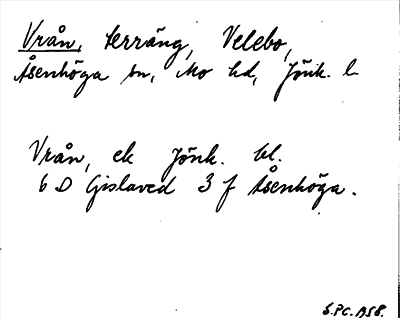 Vrån, terräng, Velebo,
Åsenhöga sn, Mo hd, Jönk. l.
Vrån, ek Jönk. bl.
6 D Gislaved 3 f Åsenhöga.
S.PC. 1958.